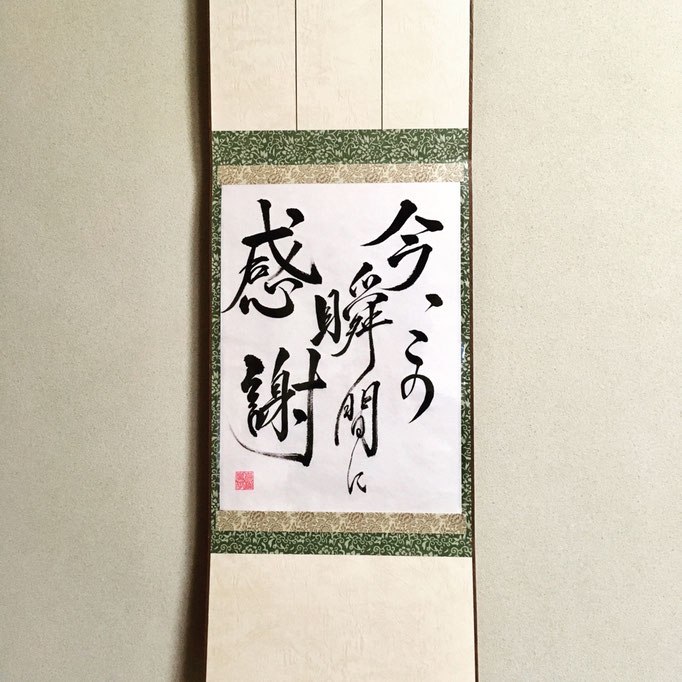 今、この
瞬間に
感謝